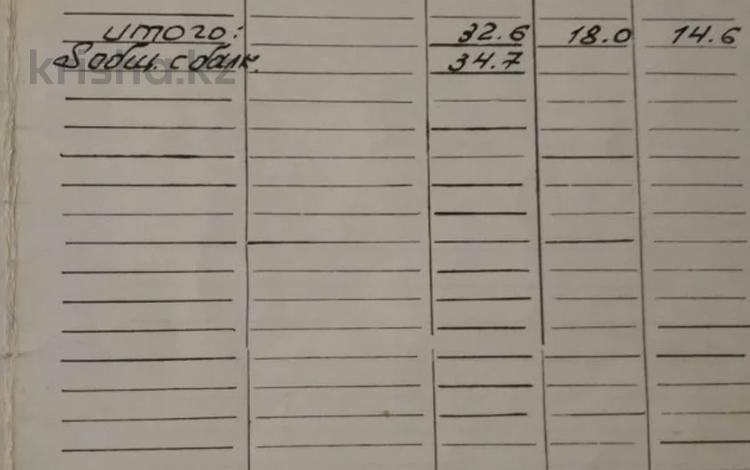 итого: 32.6 18.0 14.6
Sобщ. с балк. 34.7
krisha.kz